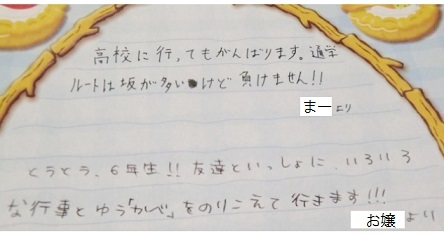 高校に行ってもがんばります。通学
ルートは坂が多いけど 負けません!!
まーより
とうとう、6年生!! 友達といっしょに、いろいろ
な行事とゆう「かべ」をのりこえて 行きます!!!
お嬢 より